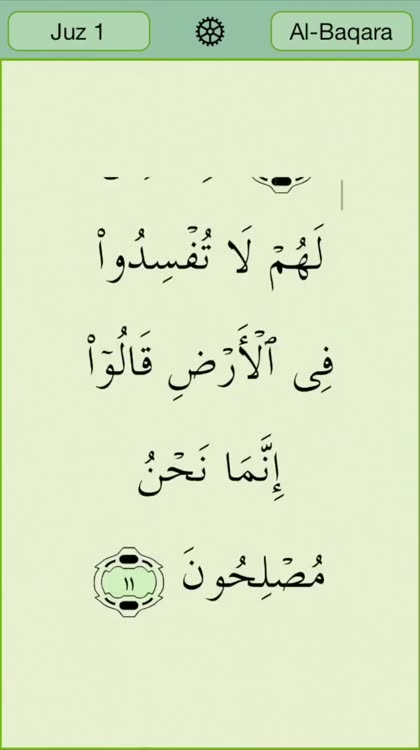 Juz 1
Al-Baqara
لَهُمْ لَا تُفْسِدُوا۟
فِى ٱلْأَرْضِ قَالُوٓا۟
إِنَّمَا نَحْنُ
مُصْلِحُونَ ١١